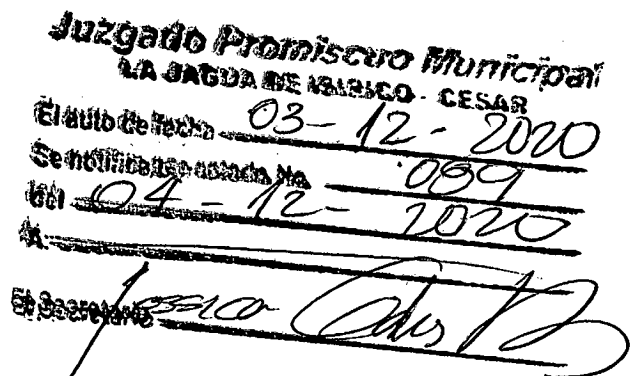 Juzgado Promiscuo Municipal
LA JAGUA DE IBIRICO - CESAR
El auto de fecha 03-12-2020
Se notifica por estado No. 089
Del 04-12-2020
A:
El Secretario